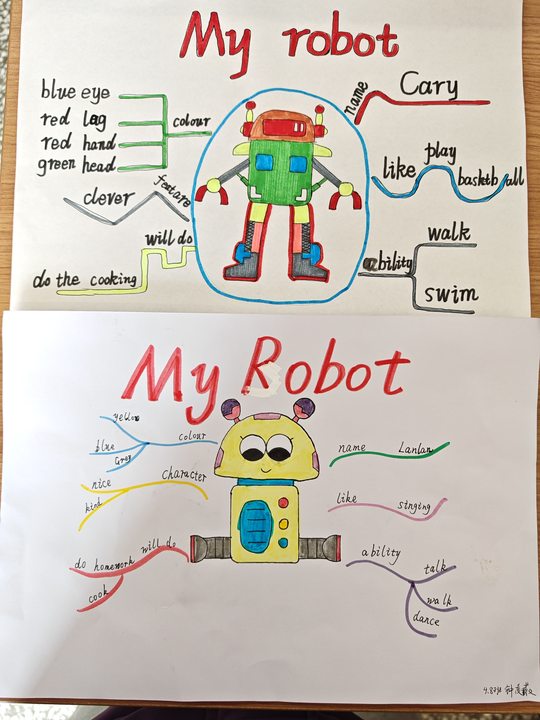 My robot
blue eye
red leg
red hand
green head
colour
clever
feature
will do
do the cooking
name
Cary
like
play
basketball
ability
walk
swim
My Robot
yellow
blue
Grey
colour
nice
kind
character
do homework
will do
cook
name Lanlan
like singing
ability
talk
walk
dance